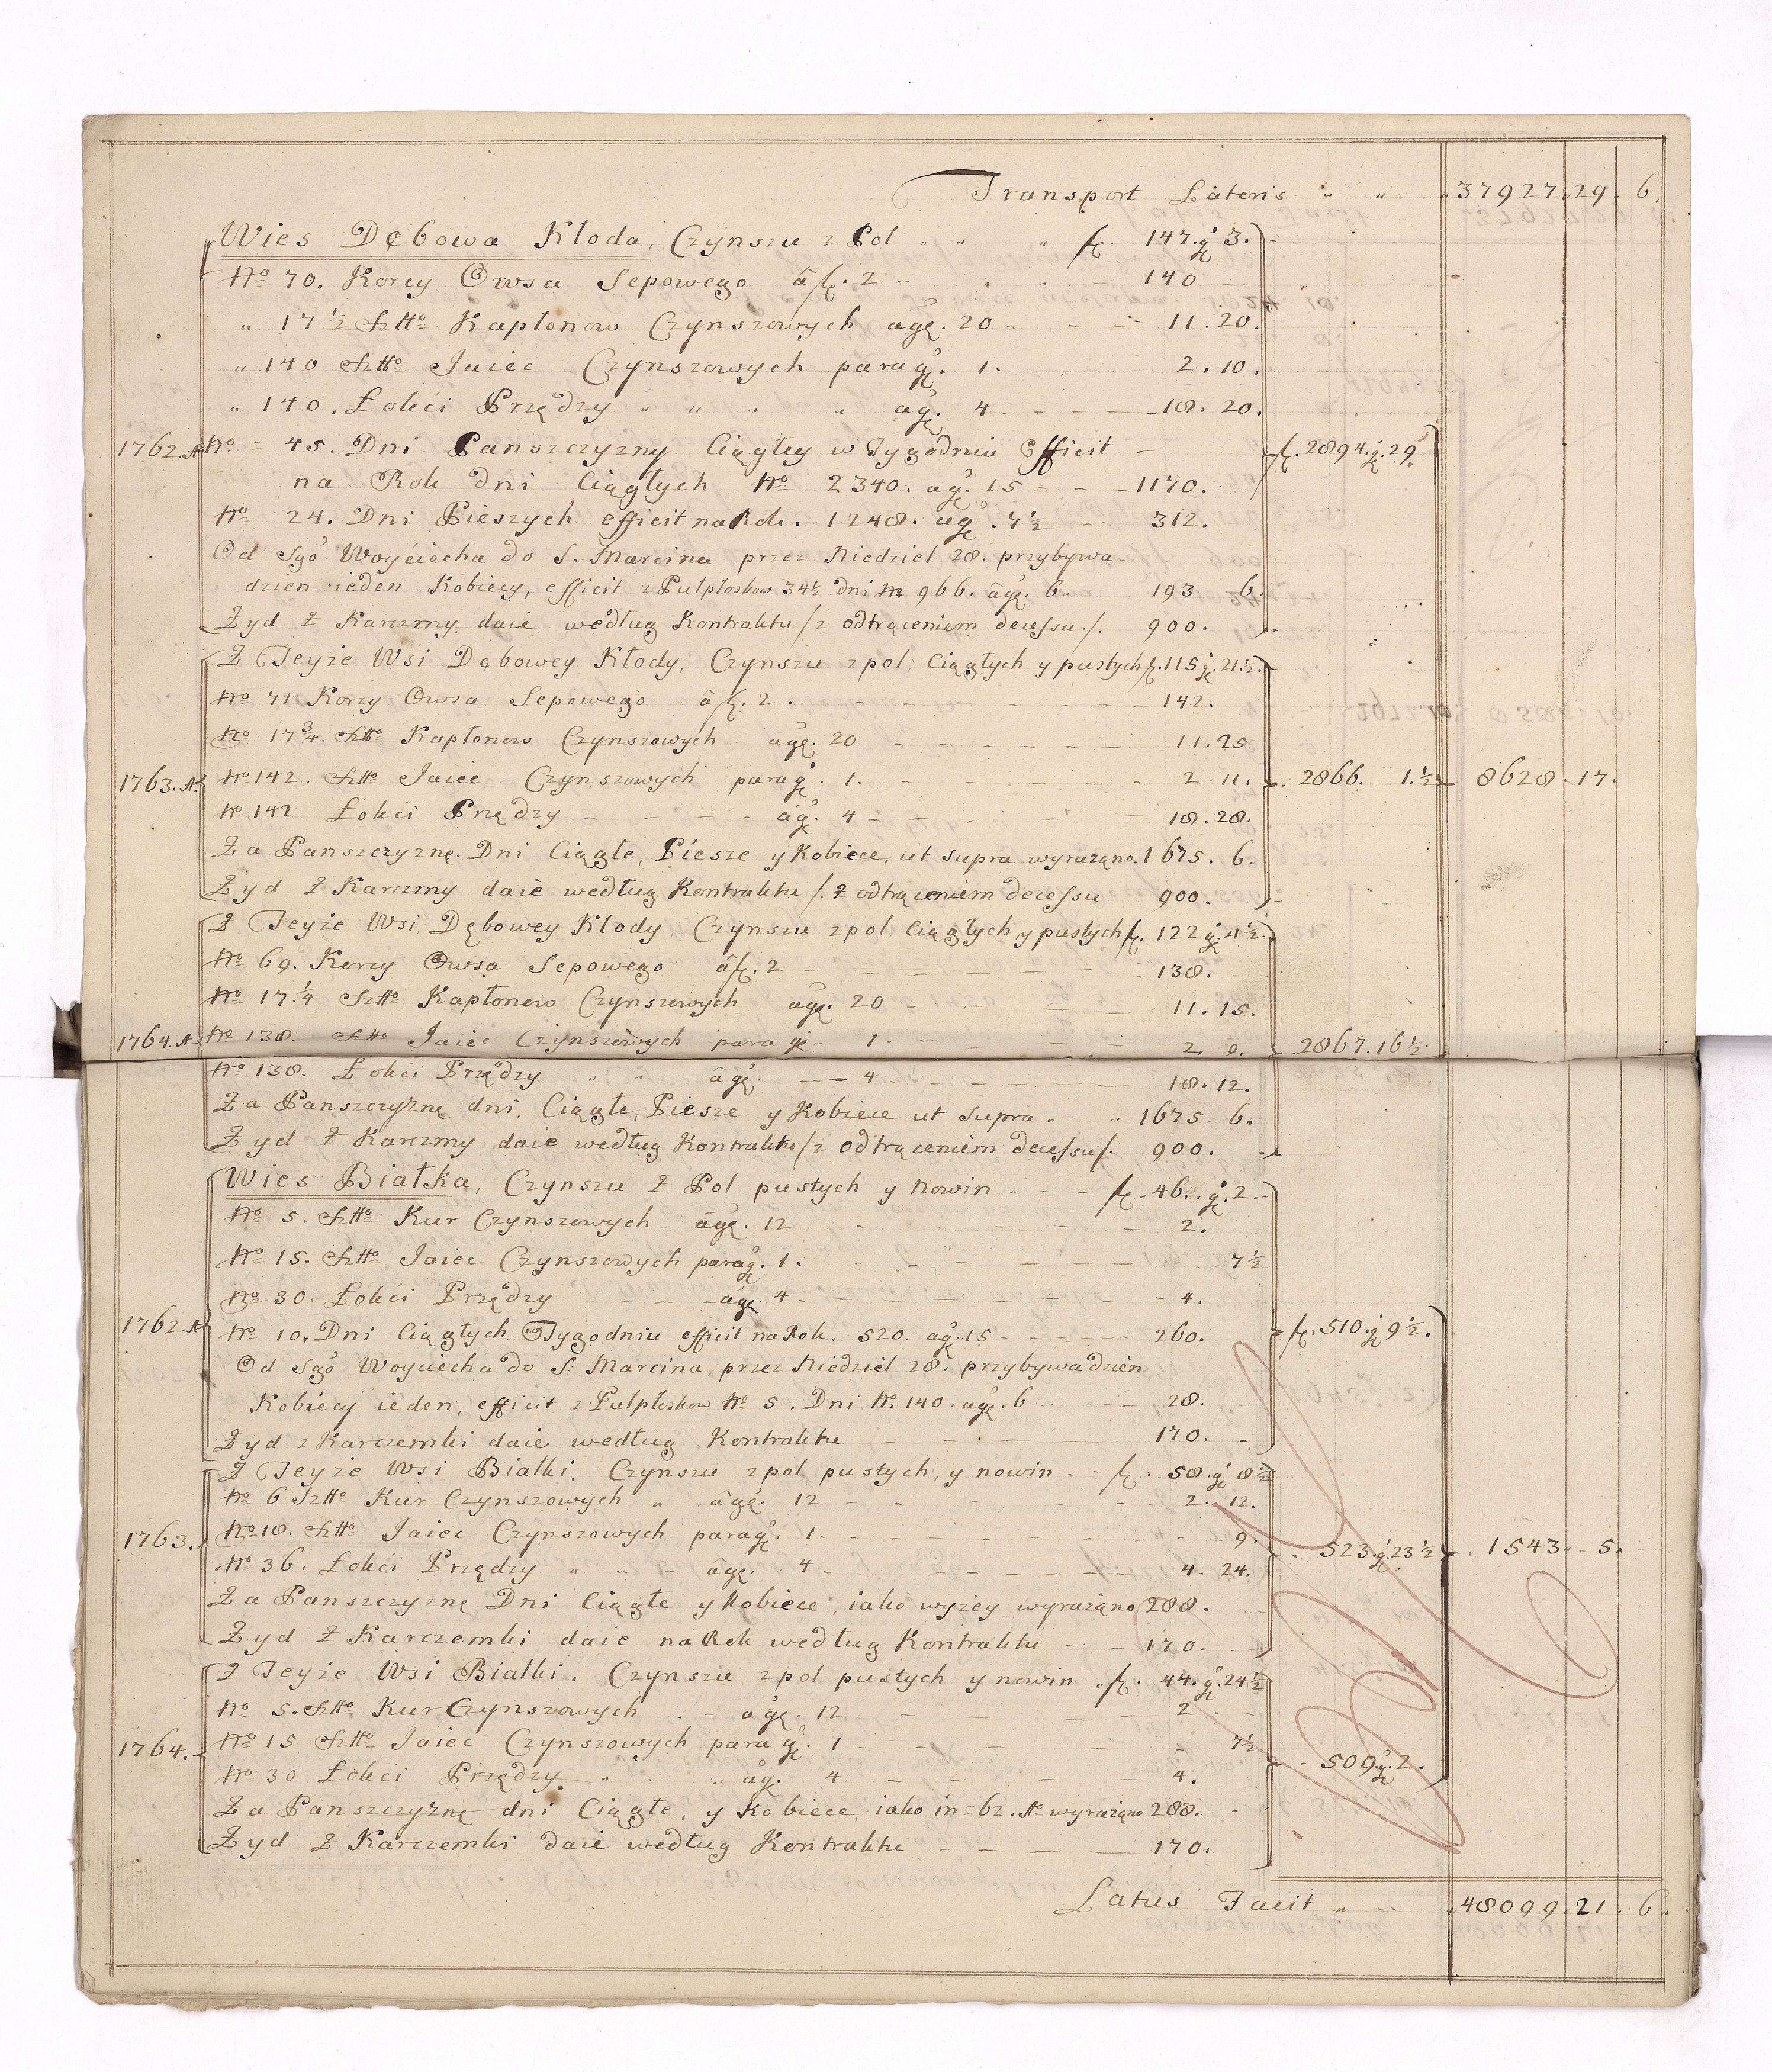 Transport Lateris " " " 37927. 29. 6.
Wies Dębowa Kłoda, Czynszu z Pol " " " fl. 147. gr. 3.
No 70. Korcy Owsa Sepowego á fl. 2 140
" 17 1/2 Sztto Kapłonow Czynszowych á gr. 20 11. 20.
" 140 Sztto Jaiec Czynszowych para gr. 1. 2. 10.
" 140. Łokci Przędzy " " " " á gr. 4 18. 20.
1762. Ao No 45. Dni Panszczyzny Ciągłey w Tygodniu Efficit fl. 2894. gr. 29
na Rok dni Ciągłych No 2340. á gr. 15 1170.
No 24. Dni Pieszych efficit na Rok. 1248. á gr. 7 1/2 312.
Od Sgo Woyciecha do S. Marcina przez Niedziel 28. przybywa
dzien ieden Kobiecy, efficit z Pułpłoskow 34 1/2 dni No 966. á gr. 6. 193 6.
Żyd z Karczmy daie według Kontraktu /z odtrąceniem decessu./. 900.
Z Teyże Wsi Dębowey Kłody, Czynszu z pol Ciągłych y pustych fl. 115 gr. 21 1/2.
No 71 Korcy Owsa Sepowego á fl. 2. 142.
No 17 3/4. Sztto Kapłonow Czynszowych á gr. 20 11. 25.
1763. Ao No 142. Sztto Jaiec Czynszowych para gr. 1. 2 11. 2866. 1. 1/2 8628. 17.
No 142 Łokci Przędzy á gr. 4 18. 28.
Za Panszczyznę. Dni Ciągłe, Piesze y Kobiece, ut supra wyrażąno. 1675. 6.
Żyd z Karczmy daie według Kontraktu /. z odtrąceniem decessu 900.
Z Teyże Wsi Dębowey Kłody, Czynszu z pol Ciągłych y pustych fl. 122 gr. 4 1/2.
No 69. Korcy Owsa Sepowego á fl. 2 138.
No 17. 1/4 Sztto Kapłonow Czynszowych á gr. 20 11. 15.
1764. Ao No 138. Sztto Jaiec Czynszowych para gr. 1 2. 9. 2867. 16 1/2
No 138. Łokci Przędzy " " á gr. 4 18. 12.
Za Panszczyznę dni, Ciągłe, Piesze y Kobiece ut supra 1675 6.
Żyd z Karczmy daie według Kontraktu /z odtrąceniem decessu/. 900.
Wies Białka, Czynszu z Pol pustych y Nowin fl. 46. gr. 2.
No 5. Sztto Kur Czynszowych á gr. 12 2.
No 15. Sztto Jaiec Czynszowych para gr. 1. 7 1/2
No 30. Łokci Przędzy á gr. 4 4.
1762. Ao No 10. Dni Ciągłych w Tygodniu efficit na Rok. 520. á gr. 15 260. fl. 510. gr. 9 1/2.
Od Sgo Woyciecha do S. Marcina, przez Niedziel 28. przybywa dzien
Kobiecy ieden, efficit z Pułpłoskow No 5. Dni No. 140. á gr. 6 28.
Żyd z Karczemki daie według Kontraktu 170.
Z Teyże Wsi Białki. Czynszu z pol pustych, y nowin fl. 58. gr. 8 1/2
No 6 Sztto Kur Czynszowych " á gr. 12 2. 12.
1763. No 18. Sztto Jaiec Czynszowych para gr. 1. 9. 523. gr. 23 1/2 1543. 5.
No 36. Łokci Przędzy " " á gr. 4 4. 24.
Za Panszczyznę Dni Ciągłe y Kobiece, iako wyżey wyrażąno 288.
Żyd z Karczemki daie na Rok według Kontraktu 170.
Z Teyże Wsi Białki. Czynszu z pol pustych y nowin fl. 44. gr. 24 1/2
No 5. Sztto Kur Czynszowych á gr. 12 2
1764. No 15 Sztto Jaiec Czynszowych para gr. 1 7 1/2 509 gr. 2.
No 30 Łokci Przędzy á gr. 4 4.
Za Panszczyznę dni Ciągłe, y Kobiece, iako in=62. Ao wyrażąno 288.
Żyd z Karczemki daie według Kontraktu 170.
Latus Facit " 48099. 21. 6.